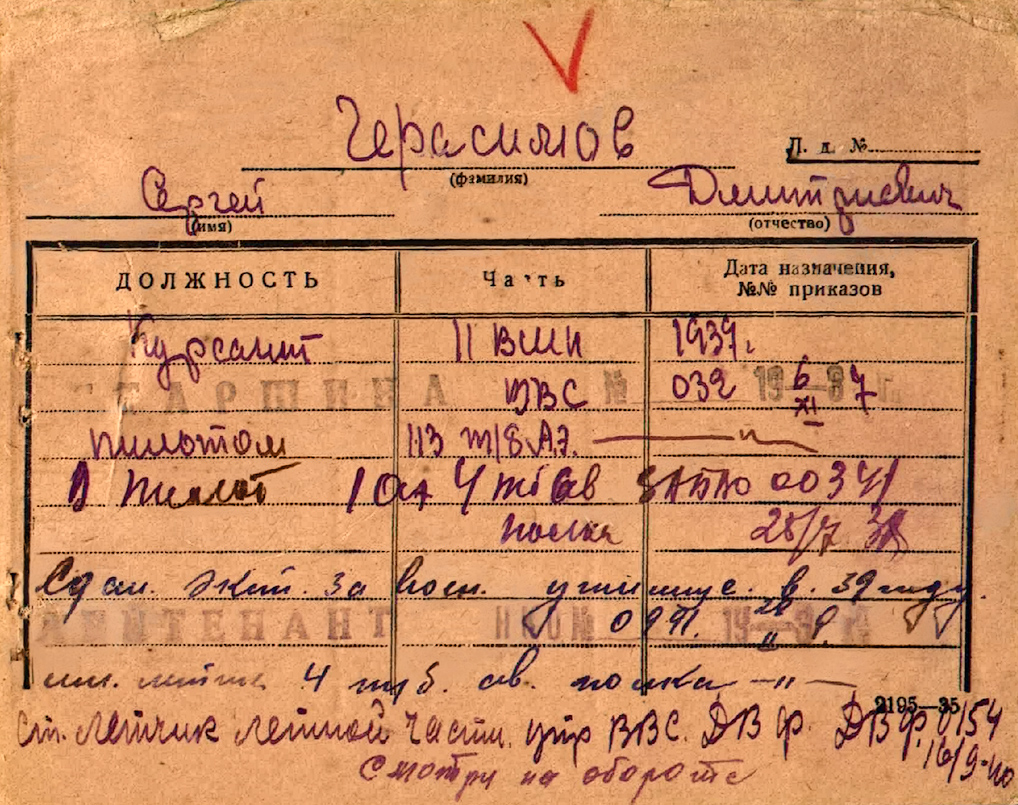 Герасимов
Л. д. №
(фамилия)
Сергей Дмитриевич
(имя) (отчество)
ДОЛЖНОСТЬ Часть Дата назначения,
№№ приказов
Курсант 11 ВШП 1937.
СТАРШИНА ВВС № 032 19 6/XI 37 г.
пилотом 113 т/б. А.Э. — " —
Пилот 4 тб ав 00341
полка 25/7 38
Сдал. экст. за воен. училище. в. 39 году.
ЛЕЙТЕНАНТ НКО № 0991. 19
4 тяб. ав. полка — " —
2195—35
Ст. летчик летной части. упр ВВС. ДВ ф. ДВ ф. 0154
16/9-40
смотри на обороте